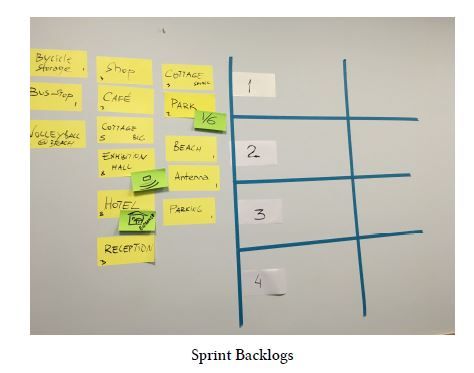 Bycicle
Storage 1
Bus-Stop 1
Volleyball
on Beach 1
Shop
3
Café
3
Cottage
5 Big
Exhibition
Hall
8
Hotel
8
Reception
3
Cottage
3 Small
Park
1/6
Beach
1
Antenna
1
Parking
1
1
2
3
4
Sprint Backlogs